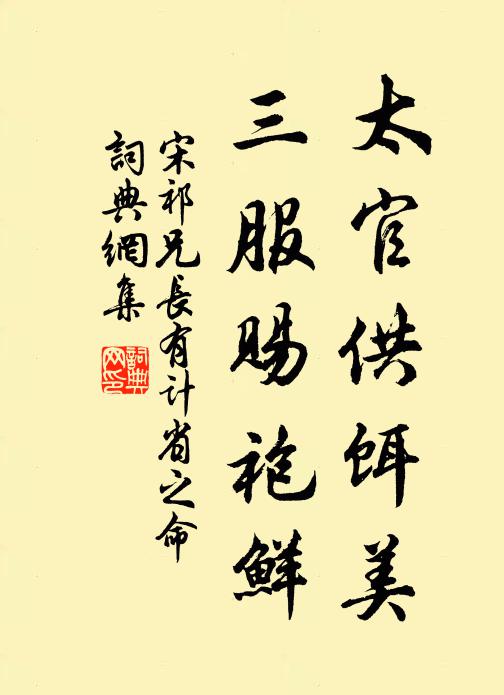 太官供餌美
三服賜袍鮮
宋祁兄長有计省之命
詞典網集
詞典网印